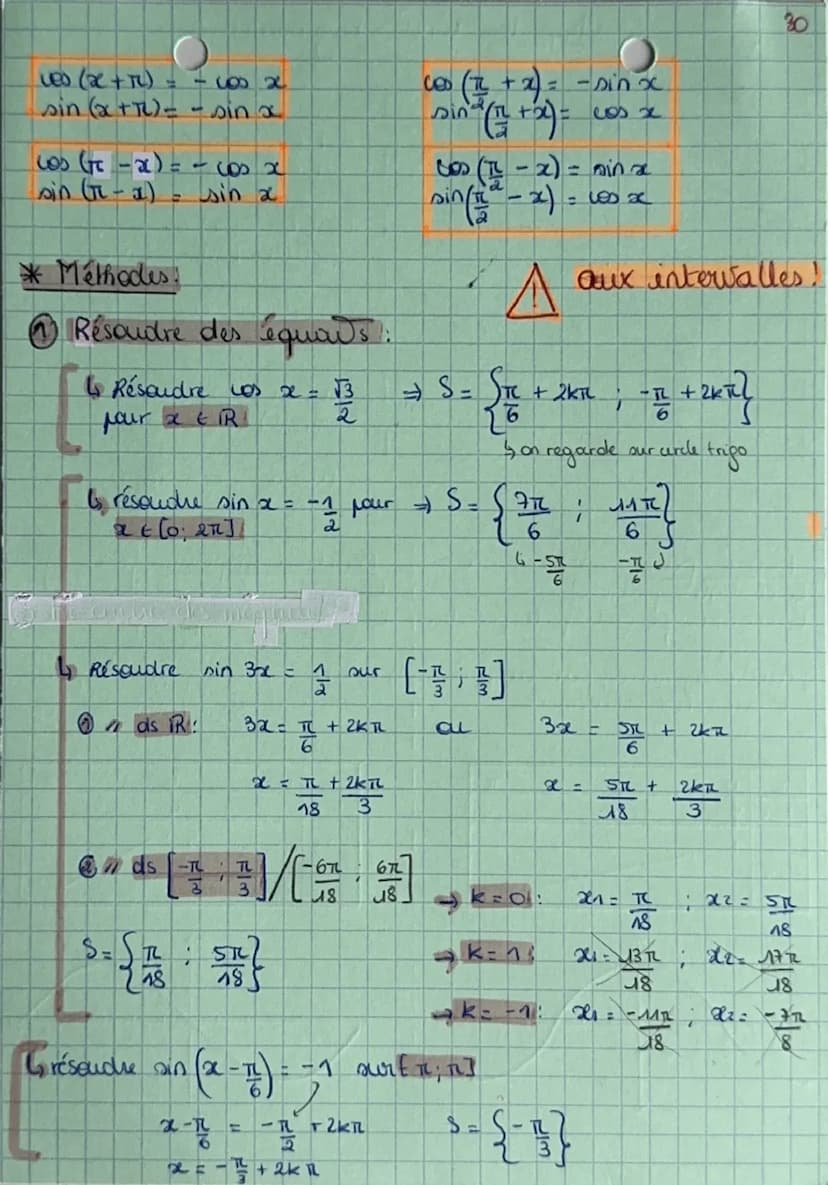 30
cos (x + π) = - cos x
sin (x + π) = - sin x
cos (π - x) = - cos x
sin (π - x) = sin x
cos (π/2 + x) = - sin x
sin (π/2 + x) = cos x
cos (π/2 - x) = sin x
sin (π/2 - x) = cos x
* Méthodes:
⚠ aux intervalles !
① Résoudre des équatºs :
↳ Résoudre cos x = √3/2 ⇒ S = {π/6 + 2kπ ; -π/6 + 2kπ}
pour x ∈ ℝ
↳ on regarde sur cercle trigo
↳ résoudre sin x = -1/2 pour ⇒ S = {7π/6 ; 11π/6}
x ∈ [0; 2π]
↳ -5π/6 -π/6 ↲
↳ Résoudre sin 3x = 1/2 sur [-π/3 ; π/3]
① // ds ℝ : 3x = π/6 + 2kπ ou 3x = 5π/6 + 2kπ
x = π/18 + 2kπ/3 x = 5π/18 + 2kπ/3
② // ds [-π/3 ; π/3] / [-6π/18 ; 6π/18]
→ k = 0 : x1 = π/18 ; x2 = 5π/18
S = {π/18 ; 5π/18}
→ k = 1 : x1 = 13π/18 ; x2 = 17π/18
→ k = -1 : x1 = -11π/18 ; x2 = -7π/8
↳ résoudre sin (x - π/6) = -1 sur [π ; π]
x - π/6 = -π/2 + 2kπ S = {-π/3}
x = -π/3 + 2kπ